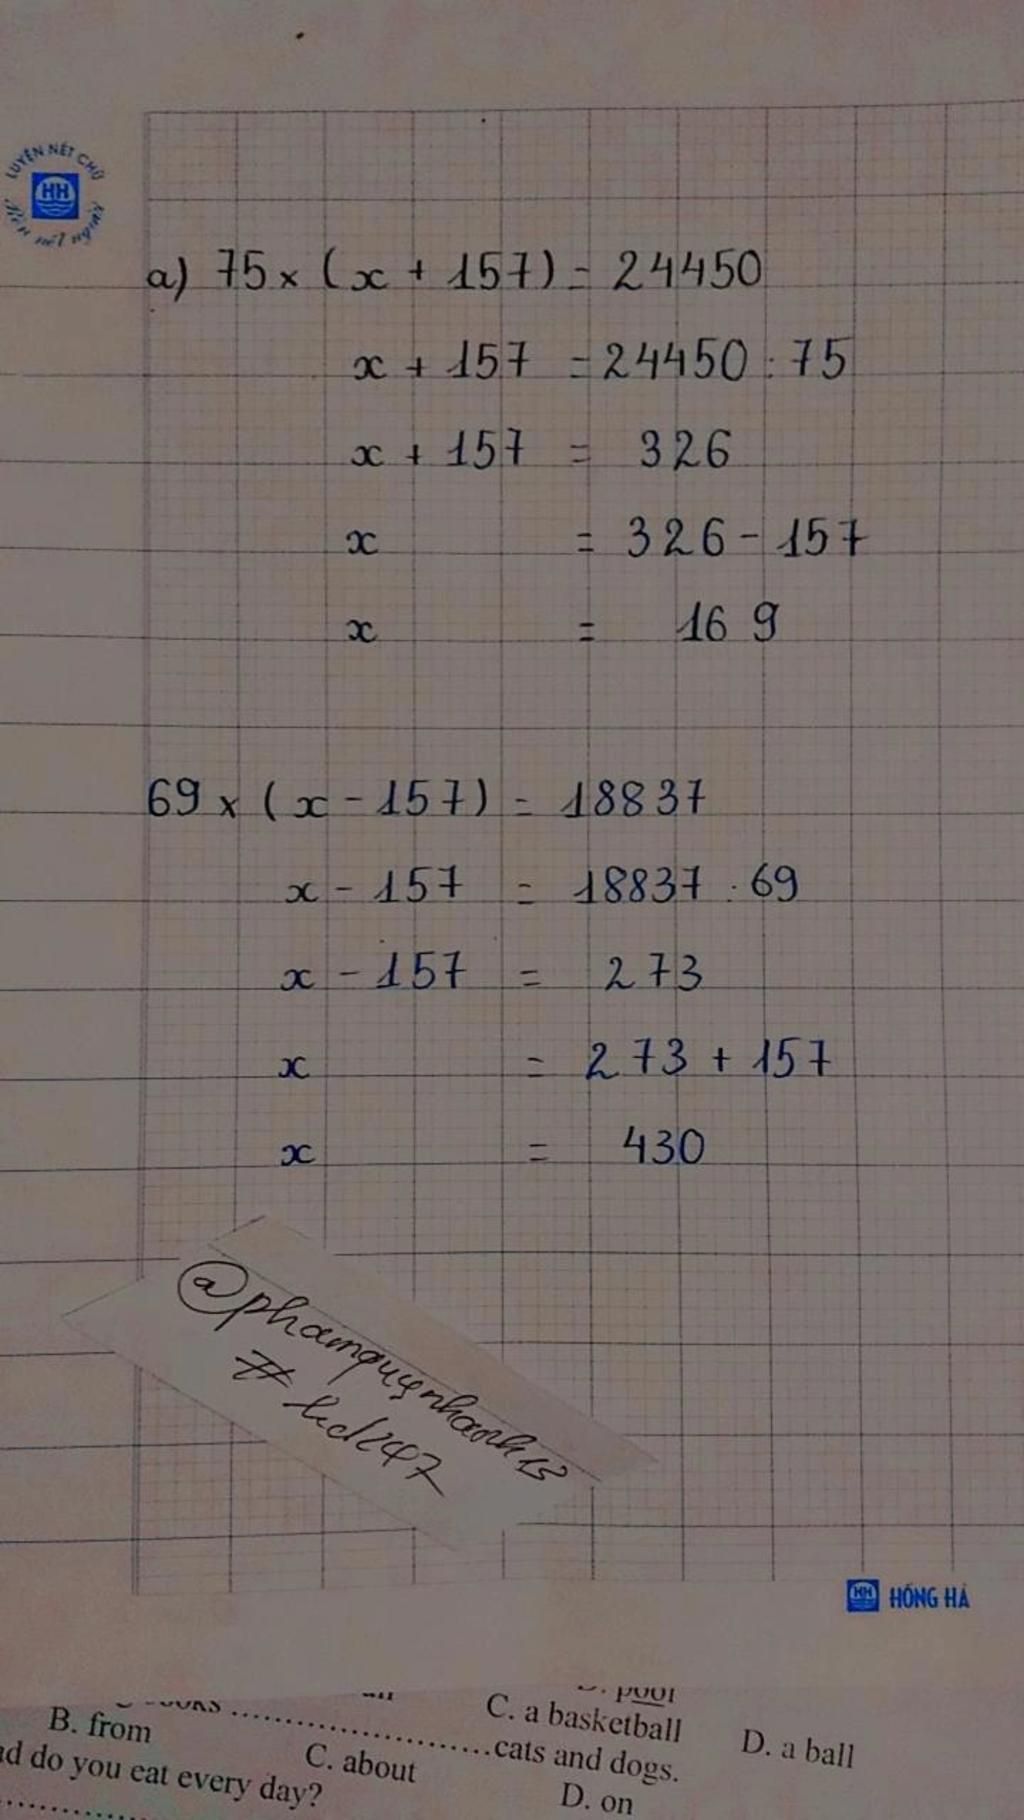 LUYỆN NÉT CHỮ
HH
Rèn nết người
a) 75 x (x + 157) = 24450
x + 157 = 24450 : 75
x + 157 = 326
x = 326 - 157
x = 169
69 x (x - 157) = 18837
x - 157 = 18837 : 69
x - 157 = 273
x = 273 + 157
x = 430
@phamquynhanh15
# hd247
HH HỒNG HÀ
D. pool
B. from
C. a basketball
D. a ball
....................cats and dogs.
do you eat every day?
C. about
D. on